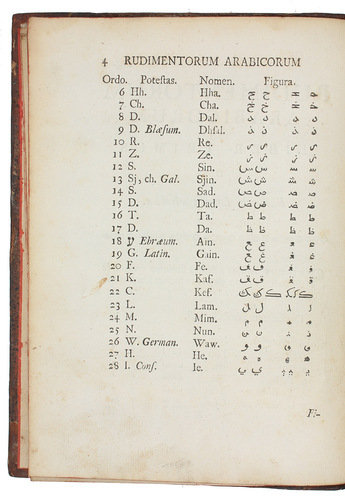 4 RUDIMENTORUM ARABICORUM
Ordo. Potestas. Nomen. Figura.
6 Hh. Hha. ح ح ﺤ ﺣ
7 Ch. Cha. خ خ ﺨ ﺧ
8 D. Dal. د د
9 D. Blæsum. ذ ذ
10 R. Re. ر ر
11 Z. Ze. ز ز
12 S. Sin. س س ﺴ ﺳ
13 Sj, ch. Gal. Sjin. ش ش ﺸ ﺷ
14 S. Sad. ص ص ﺼ ﺻ
15 D. Dad. ض ض ﻀ ﺿ
16 T. Ta. ط ط ط ط
17 D. Da. ظ ظ ظ ظ
18 ע Ebræum. Ain. ع ع ﻌ ﻋ
19 G. Latin. Gain. غ غ ﻐ ﻏ
20 F. Fe. ف ف ﻔ ﻓ
21 K. Kaf. ق ق ﻘ ﻗ
22 C. Kef.
23 L. Lam. ل ل ﻠ ﻟ
24 M. Mim. م م ﻤ ﻣ
25 N. Nun. ن ن ﻨ ﻧ
26 W. German. Waw. و و
27 H. He.
28 I. Cons. Ie. ي ي ﻴ ﻳ
Fi-